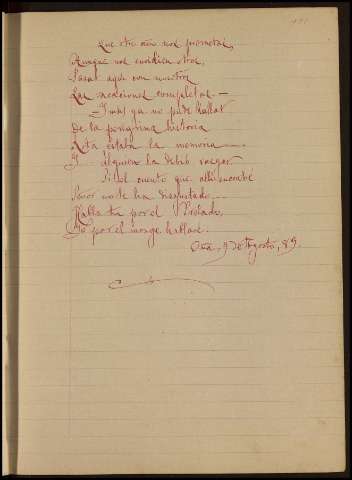 Que otro año nos prometais,
Aunque nos envidien otros,
Pasar aqui con nosotros
Las vacaciones completas.—
—Y mas ya no pude hallar
De la peregrina historia
Rota estaba la memoria
Y alguien la debió rasgar
Si el cuento que alli encontré
Señor no te ha disgustado
Habla tu por el Prelado
Yo por el monge hablaré.
Oña, 9 de Agosto, 89.